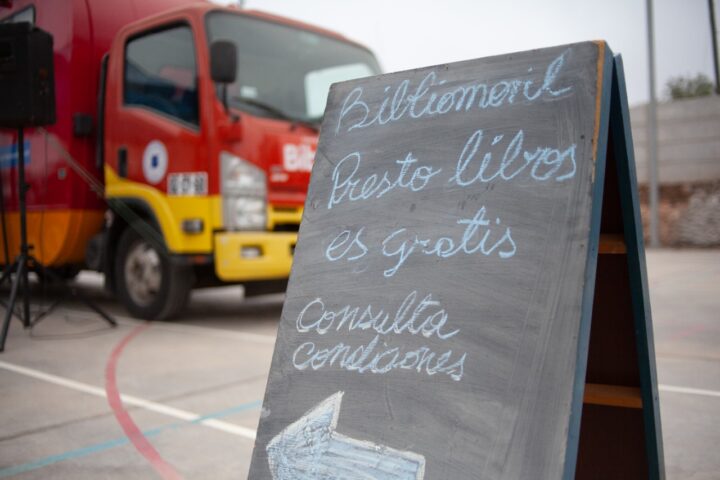 Bibliomovil
Presto libros
es Gratis
Consulta
condiciones